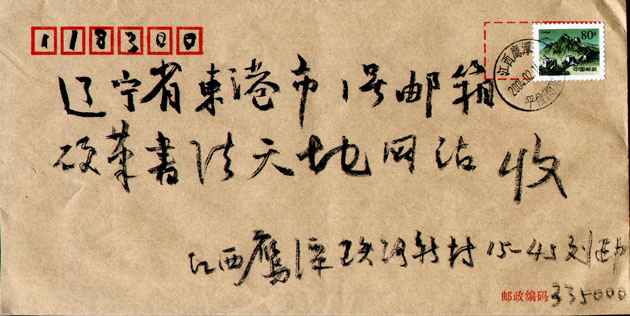 118300
80分
中国邮政
江西鹰潭
2004.02
辽宁省東港市1号邮箱
硬笔書法天地网站 收
江西鹰潭铁路新村15-45刘
邮政编码 335000